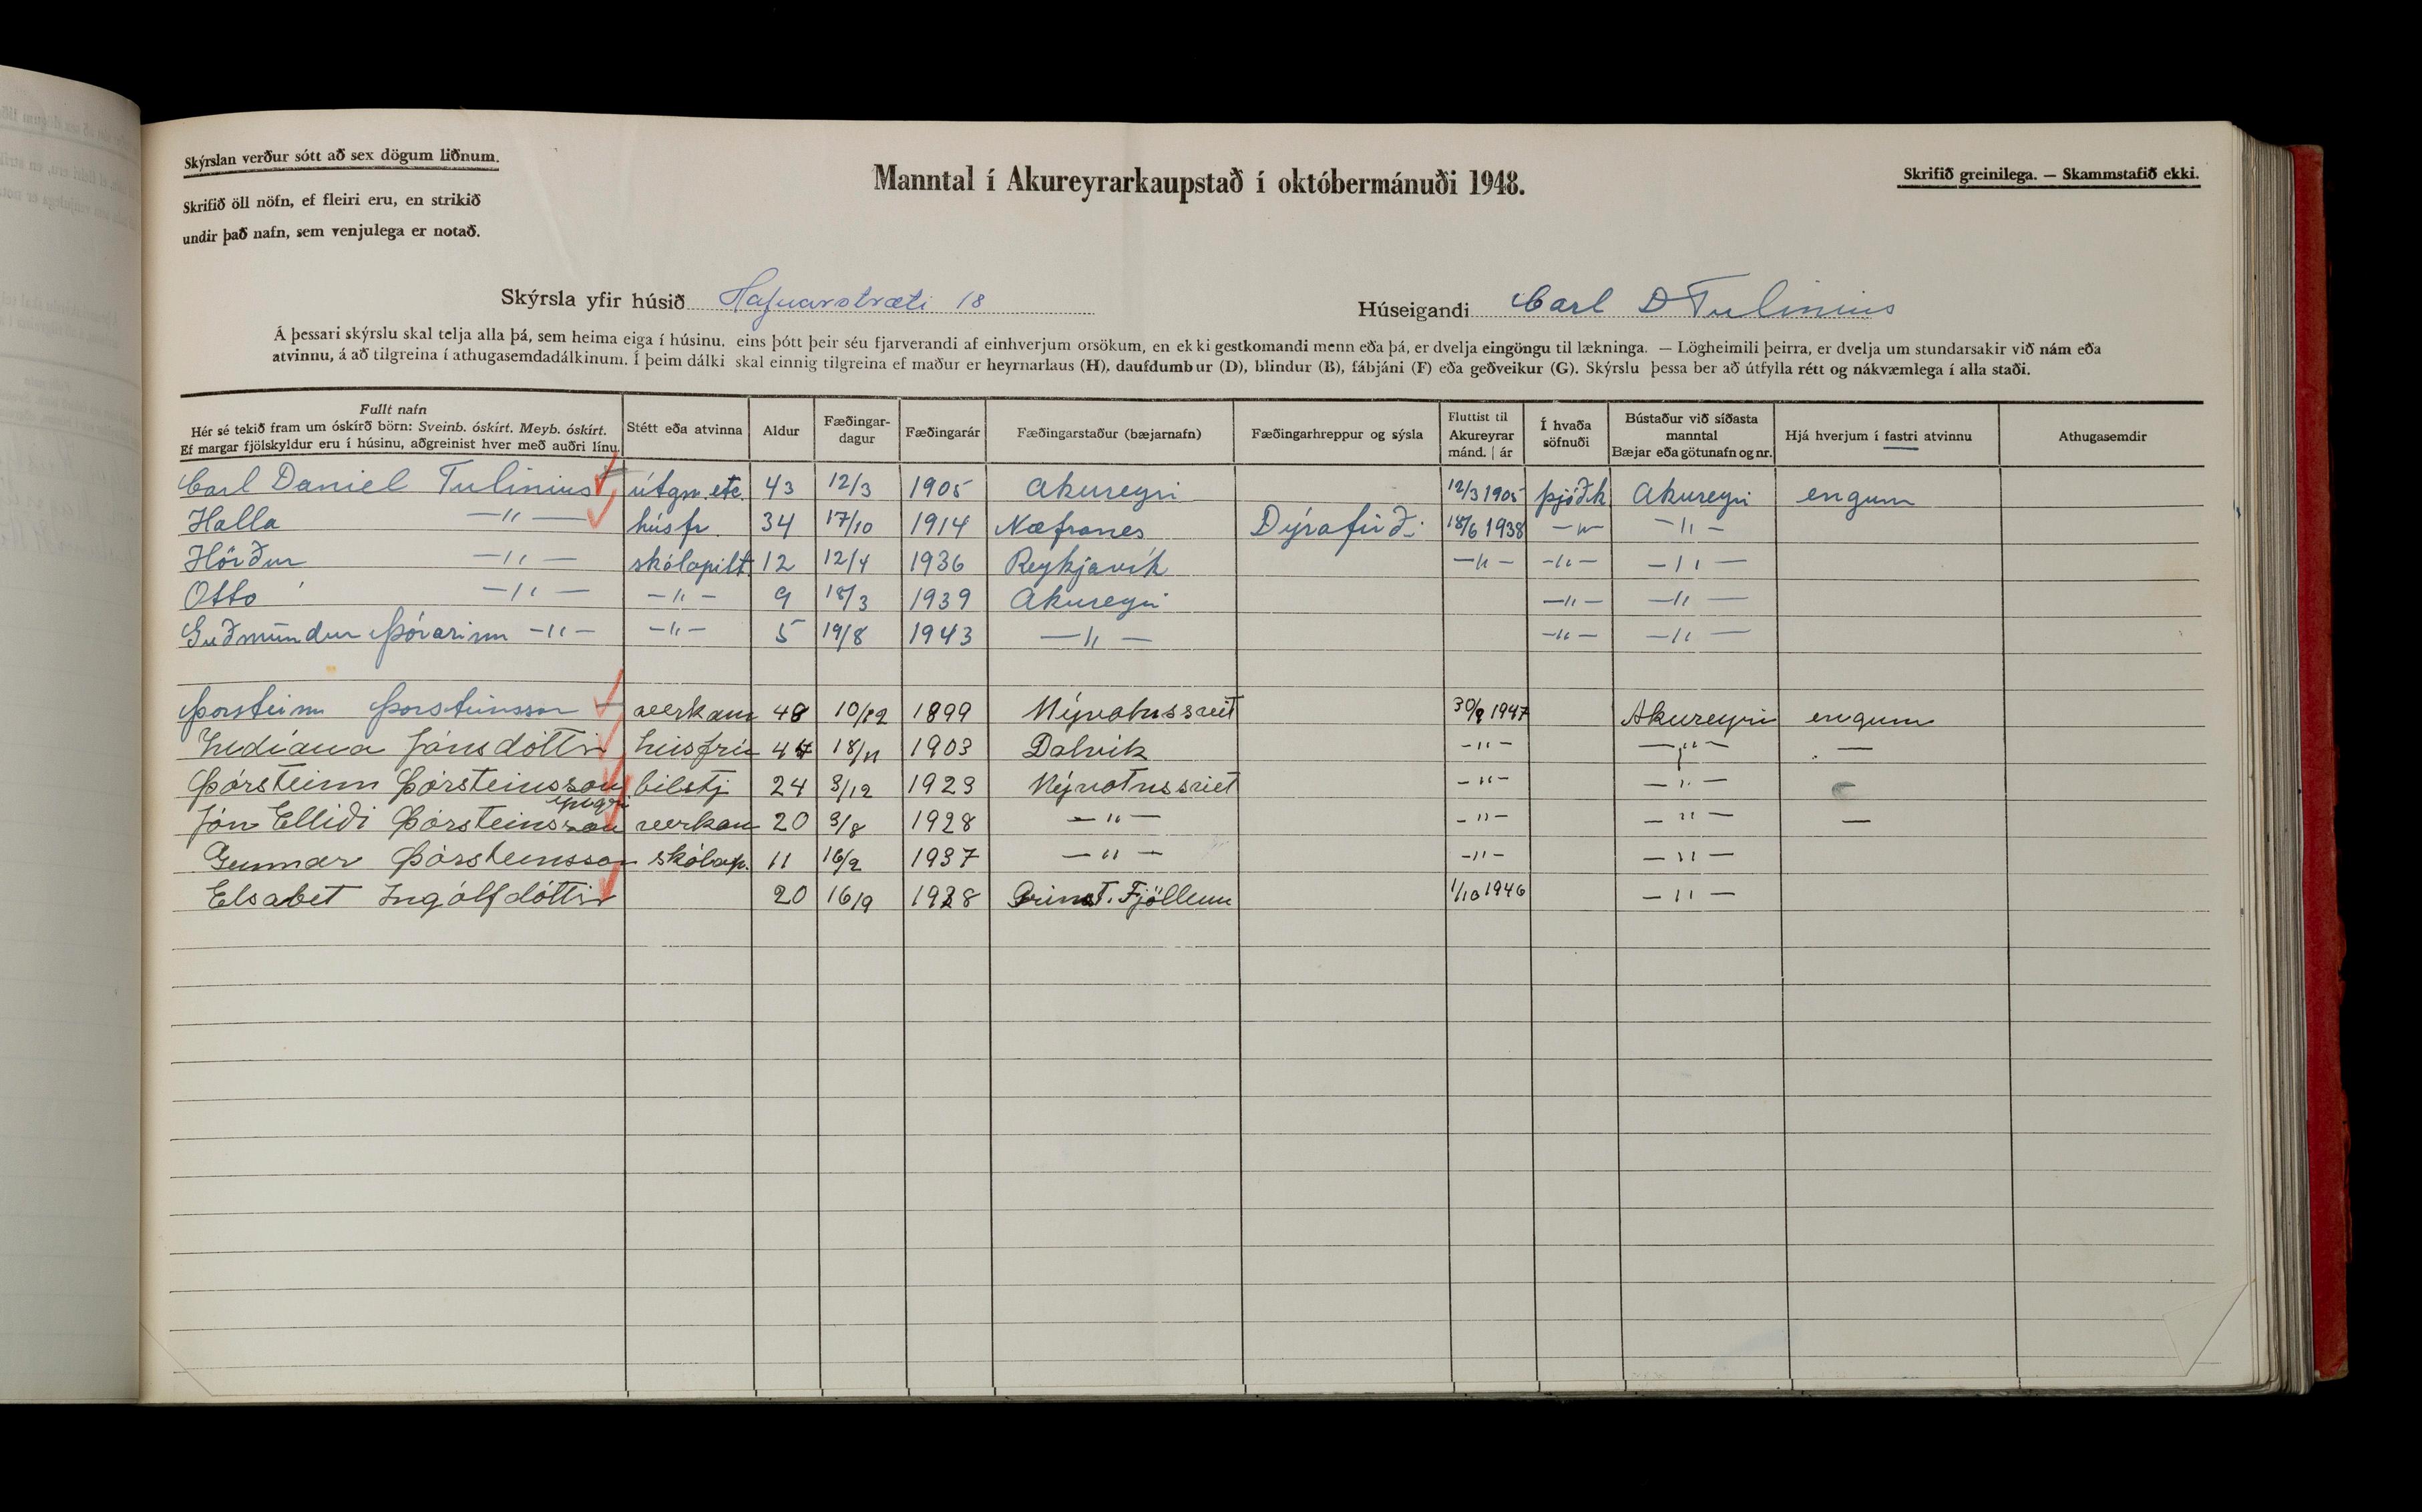 Skýrslan verður sótt að sex dögum liðnum.
Skrifið öll nöfn, ef fleiri eru, en strikið
undir það nafn, sem venjulega er notað.
Manntal í Akureyrarkaupstað í októbermánuði 1948.
Skrifið greinilega. — Skammstafið ekki.
Skýrsla yfir húsið Hafnarstræti 18
Húseigandi Carl D Tulinius
Á þessari skýrslu skal telja alla þá, sem heima eiga í húsinu, eins þótt þeir séu fjarverandi af einhverjum orsökum, en ekki gestkomandi menn eða þá, er dvelja eingöngu til lækninga. — Lögheimili þeirra, er dvelja um stundarsakir við nám eða
atvinnu, á að tilgreina í athugasemdadálkinum. Í þeim dálki skal einnig tilgreina ef maður er heyrnarlaus (H), daufdumbur (D), blindur (B), fábjáni (F) eða geðveikur (G). Skýrslu þessa ber að útfylla rétt og nákvæmlega í alla staði.
Fullt nafn
Hér sé tekið fram um óskírð börn: Sveinb. óskírt. Meyb. óskírt.
Ef margar fjölskyldur eru í húsinu, aðgreinist hver með auðri línu.
Stétt eða atvinna
Aldur
Fæðingar-
dagur
Fæðingarár
Fæðingarstaður (bæjarnafn)
Fæðingarhreppur og sýsla
Fluttist til
Akureyrar
mánd. | ár
Í hvaða
söfnuði
Bústaður við síðasta
manntal
Bæjar eða götunafn og nr.
Hjá hverjum í fastri atvinnu
Athugasemdir
Carl Daniel Tulinius útgm. etc. 43 12/3 1905 Akureyri 12/3 1905 þjóðk Akureyri engum
Halla —"— húsfr 34 17/10 1914 Næfranes Dýrafirð. 18/6 1938 —"— —"—
Hörður —"— skólapilt. 12 12/4 1936 Reykjavík —"— —"— —"—
Otto —"— —"— 9 18/3 1939 Akureyri —"— —"—
Guðmundur Þórarinn —"— —"— 5 19/8 1943 —"— —"— —"—
Þorsteinn Þorsteinsson verkam 48 10/12 1899 Mývatnssveit 30/9 1947 Akureyri engum
Indíana Jónsdóttir húsfrú 44 18/11 1903 Dalvík —"— —"— —
Þórsteinn Þórsteinsson bílstj 24 3/12 1923 Mývatnssviet —"— —"—
yngri
Jón Elliði Þórsteinsson verkam 20 3/8 1928 —"— —"— —"— —
Gunnar Þórsteinsson skólap. 11 16/2 1937 —"— —"— —"—
Elsabet Ingólfdóttir 20 16/9 1928 Grimst. Fjöllum 1/10 1946 —"—